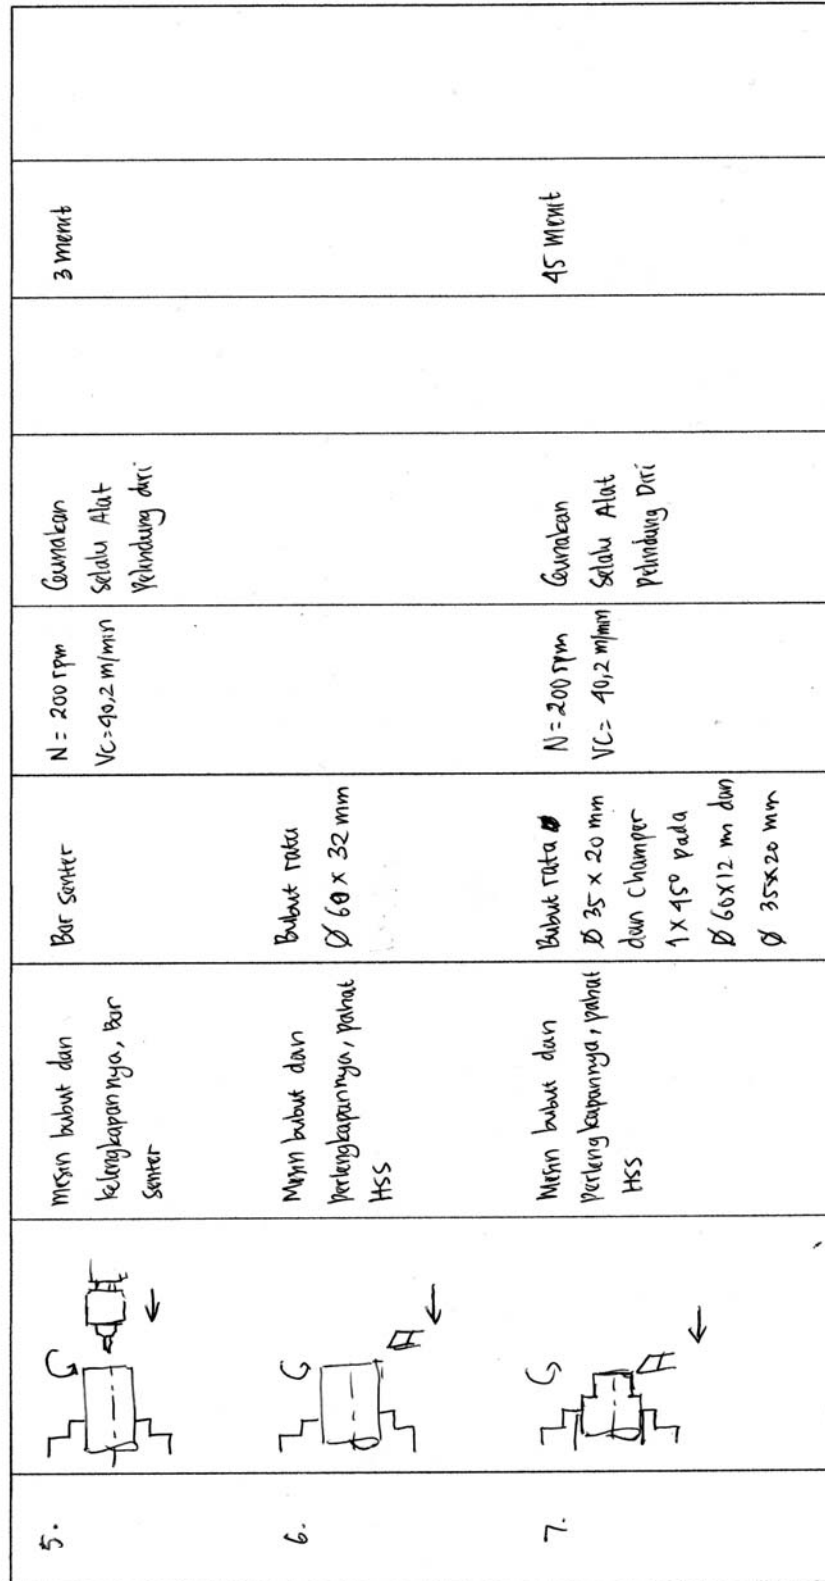 5.
mesin bubut dan
kelengkapannya, Bor
senter
Bor senter
N = 200 rpm
VC=40,2 m/min
Gunakan
selalu Alat
Pelindung diri
3 menit
6.
Mesin bubut dan
perlengkapannya, pahat
HSS
Bubut rata
Ø 60 x 32 mm
7.
Mesin bubut dan
perlengkapannya, pahat
HSS
Bubut rata
Ø 35 x 20 mm
dan champer
1 x 45° pada
Ø 60x12 mm dan
Ø 35x20 mm
N = 200 rpm
VC= 40,2 m/min
Gunakan
selalu Alat
Pelindung Diri
45 Menit